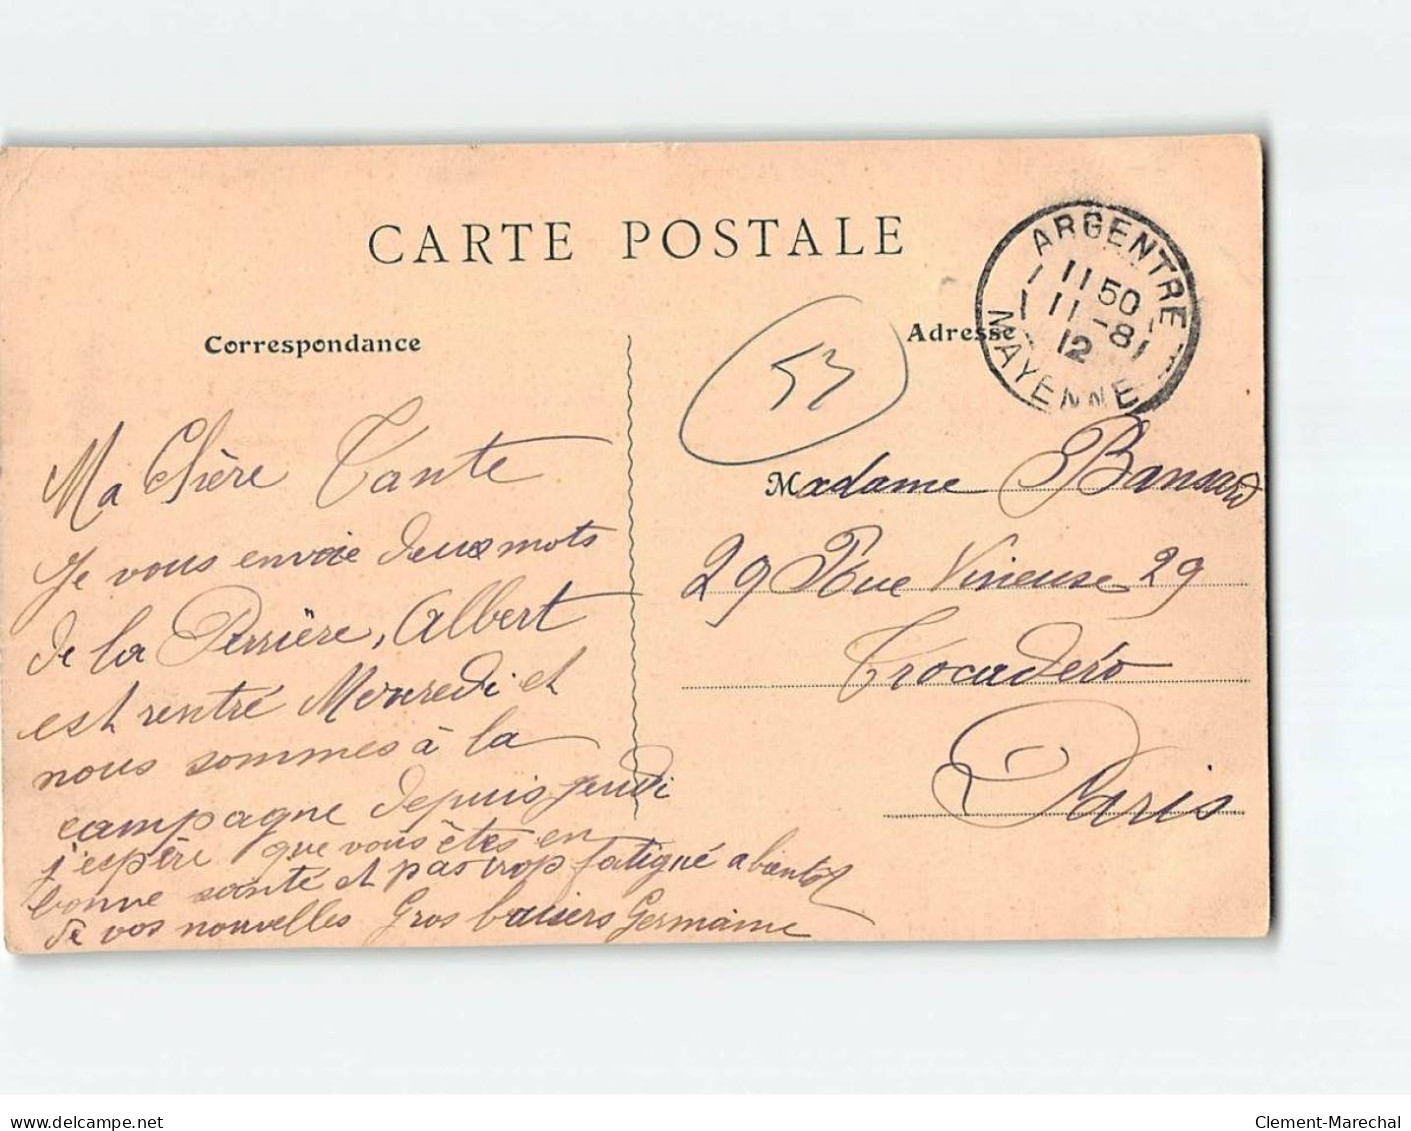 CARTE POSTALE
Correspondance
Adresse
ARGENTRE
11 50
11 - 8
12
MAYENNE
53
Ma Chère Tante
Je vous envoie deux mots
de la Perrière, Albert
est rentré Mercredi et
nous sommes à la
campagne depuis jeudi
j'espère que vous êtes en
bonne santé et pas trop fatigué a bientot
de vos nouvelles Gros baisers Germaine
Madame Bansard
29 Rue Vineuse 29
Trocadéro
Paris
www.delcampe.net
Clement-Marechal